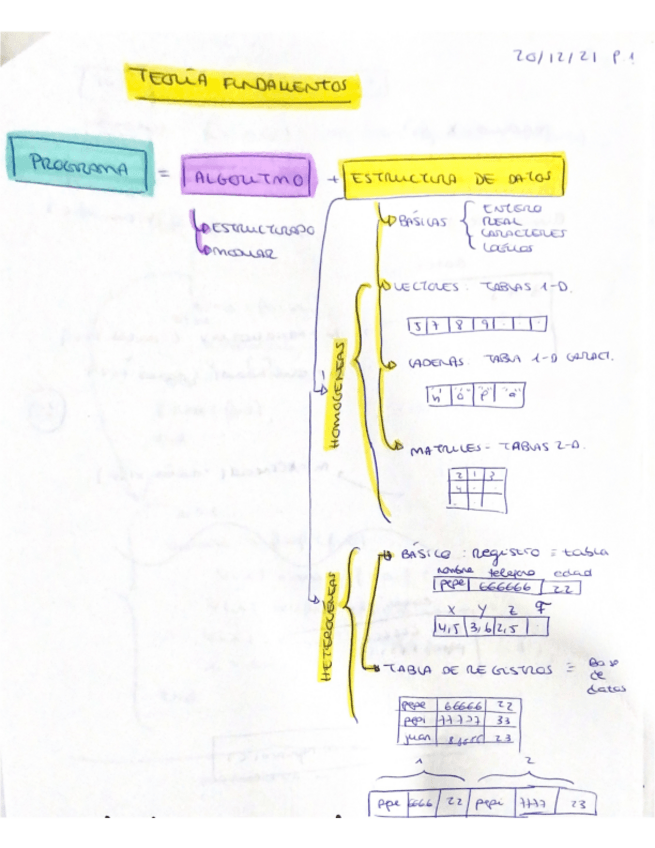 20/12/21 P1
TEORÍA FUNDAMENTOS
PROGRAMA = ALGORITMO + ESTRUCTURA DE DATOS
ESTRUCTURADO
MODULAR
BÁSICAS { ENTERO
REAL
CARACTERES
LÓGICOS
HOMOGÉNEAS
VECTORES - TABLAS 1-D.
5 7 8 9 . .
CADENAS. TABLA 1-D CARACT.
'h' 'o' 'p' 'a'
MATRICES - TABLAS 2-D.
2 1 3
4 . .
HETEROGÉNEAS
BÁSICO : Registro = tabla
nombre telefono edad
pepe 666666 22
X Y Z F
4,5 3,6 2,5 .
TABLA DE REGISTROS = Base
de
datos
pepe 66666 22
pepi 77777 33
juan 23
1 2
ppe 6666 22 pepi 7777 23